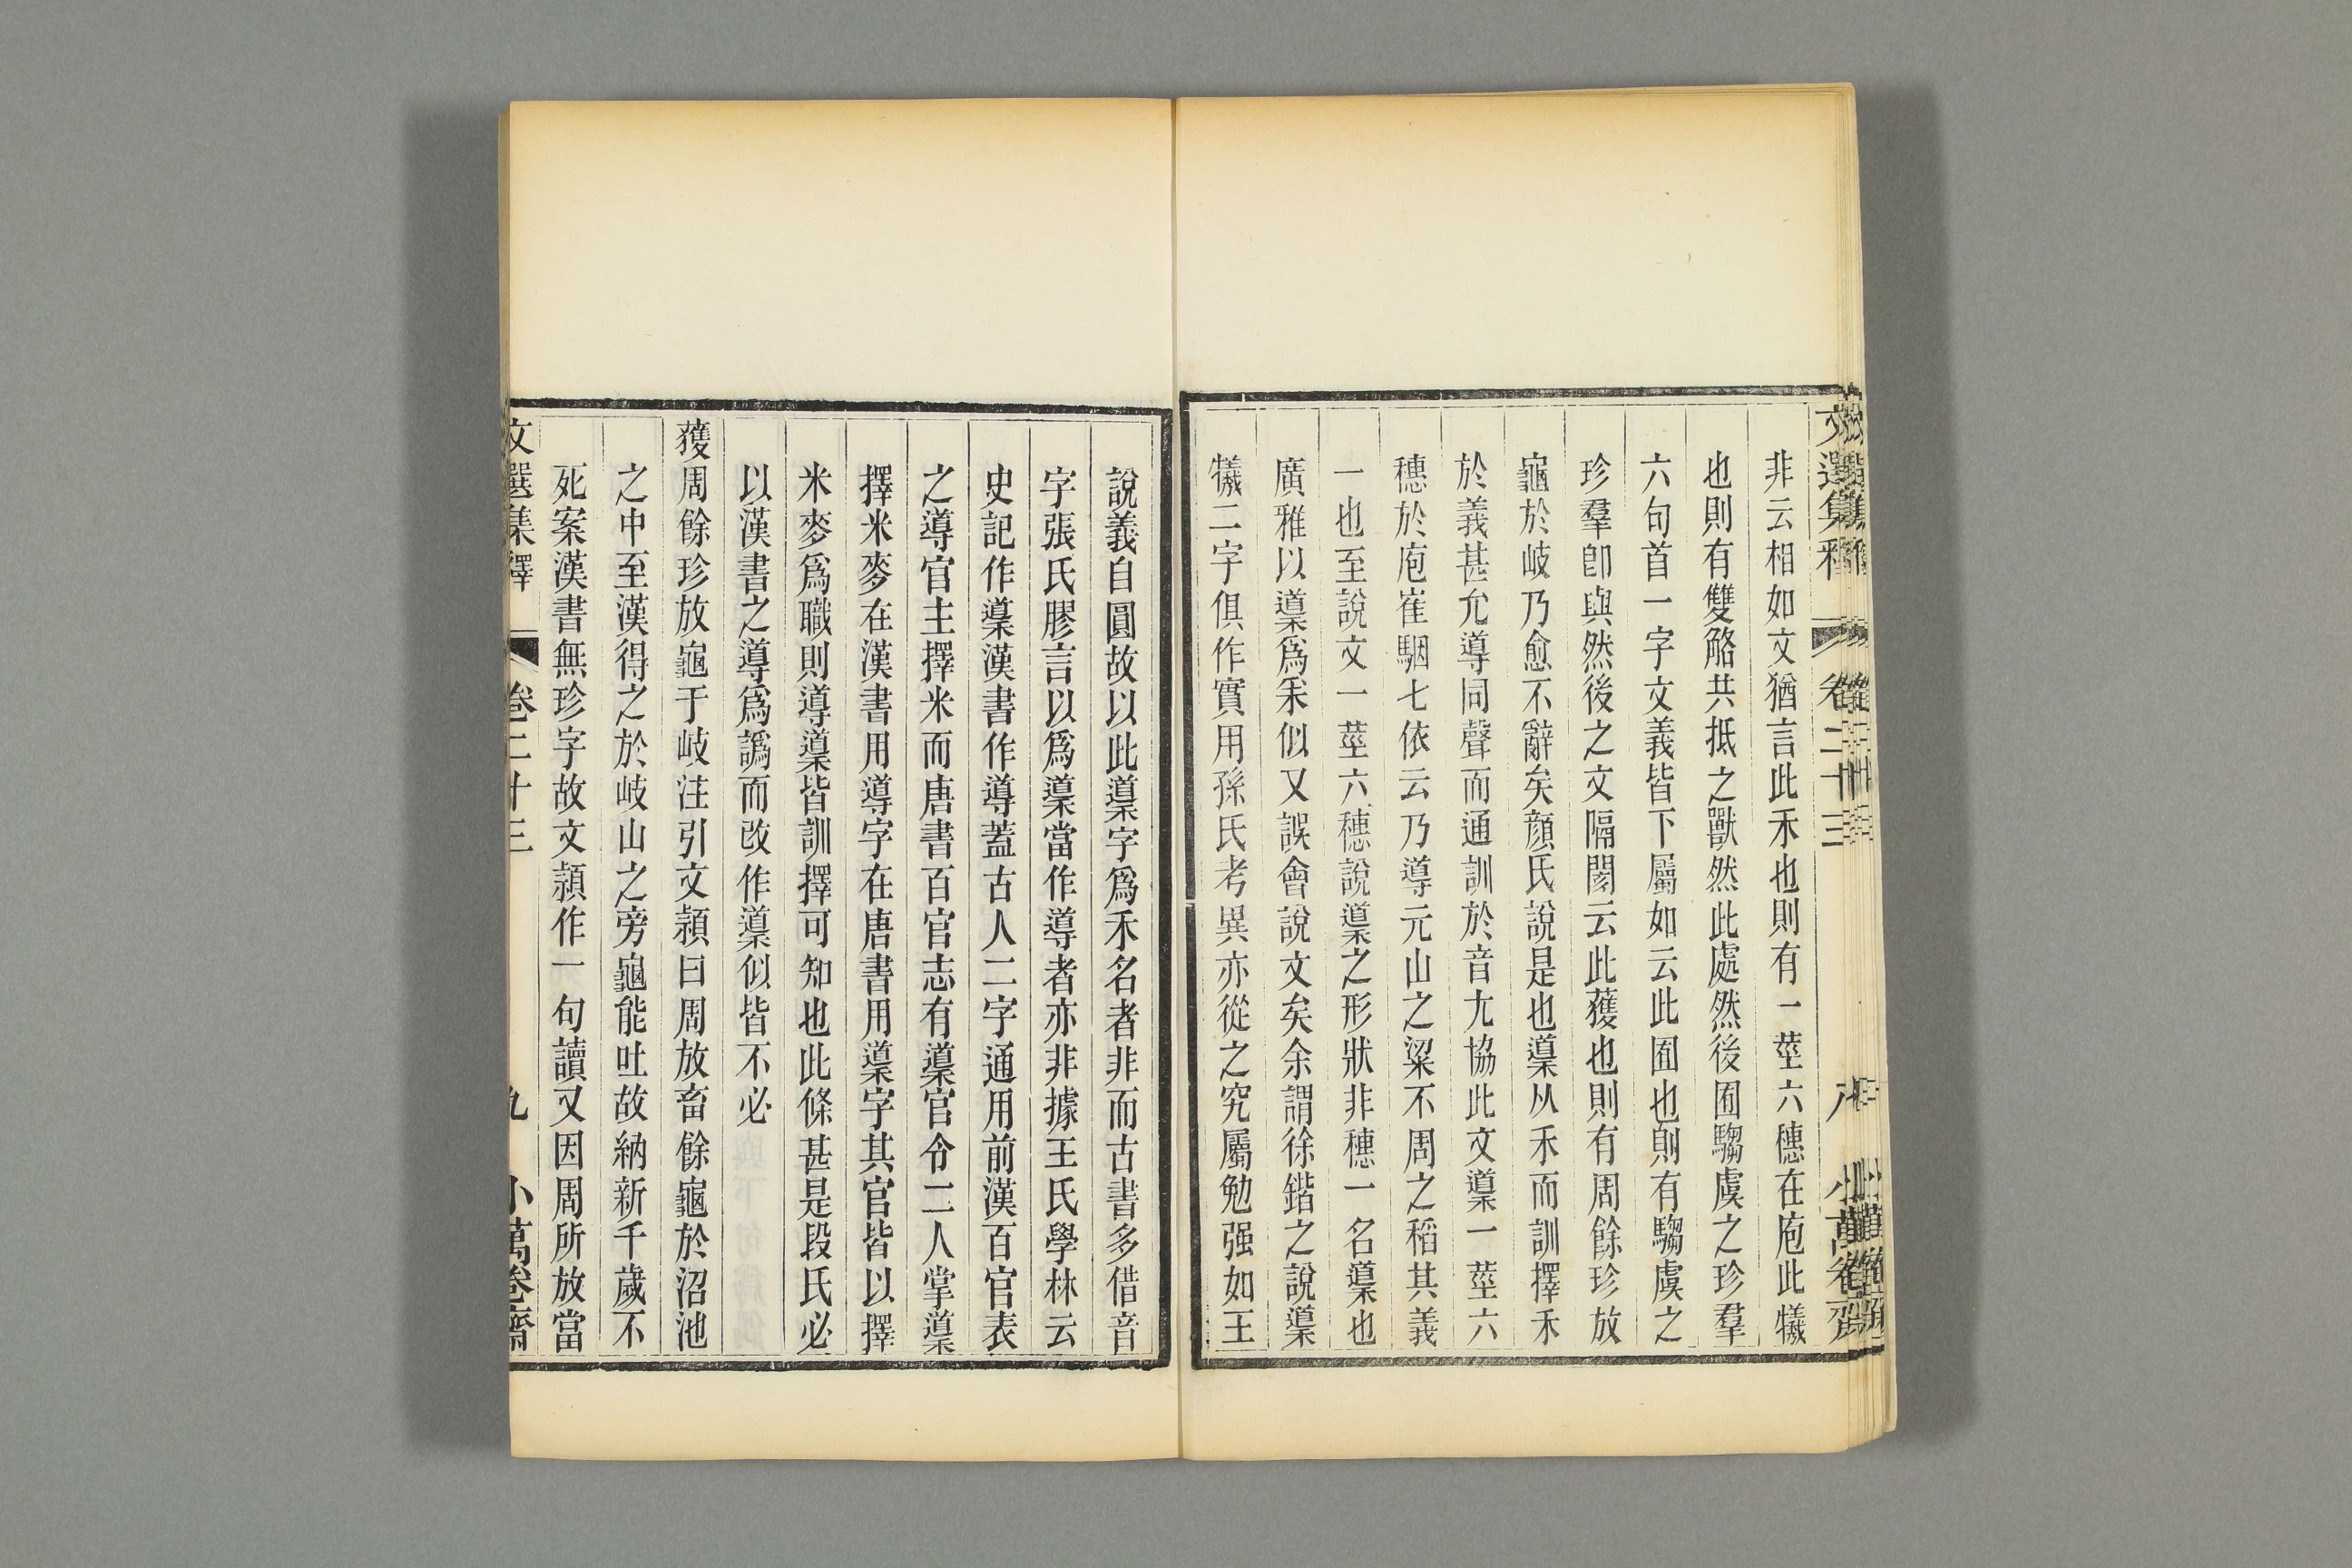 文選集釋 卷二十三 八 小萬卷齋
非云相如文猶言此禾也則有一莖六穗在庖此犧
也則有雙觡共抵之獸然此處然後囿騶虞之珍羣
六句首一字文義皆下屬如云此囿也則有騶虞之
珍羣卽與然後之文隔閡云此獲也則有周餘珍放
龜於岐乃愈不辭矣顏氏說是也䆃从禾而訓擇禾
於義甚允導同聲而通訓於音尤協此文䆃一莖六
穗於庖崔駰七依云乃導元山之粱不周之稻其義
一也至說文一莖六穗說䆃之形狀非穗一名䆃也
廣雅以䆃爲釆似又誤會說文矣余謂徐鍇之說䆃
犧二字俱作實用孫氏考異亦從之究屬勉强如王
說義自圓故以此䆃字爲禾名者非而古書多借音
字張氏膠言以爲䆃當作導者亦非據王氏學林云
史記作䆃漢書作導蓋古人二字通用前漢百官表
之導官主擇米而唐書百官志有䆃官令二人掌䆃
擇米麥在漢書用導字在唐書用䆃字其官皆以擇
米麥爲職則導䆃皆訓擇可知也此條甚是段氏必
以漢書之導爲譌而改作䆃似皆不必
獲周餘珍放龜于岐注引文潁曰周放畜餘龜於沼池
之中至漢得之於岐山之旁龜能吐故納新千歲不
死案漢書無珍字故文潁作一句讀又因周所放當
文選集釋 卷二十三 九 小萬卷齋